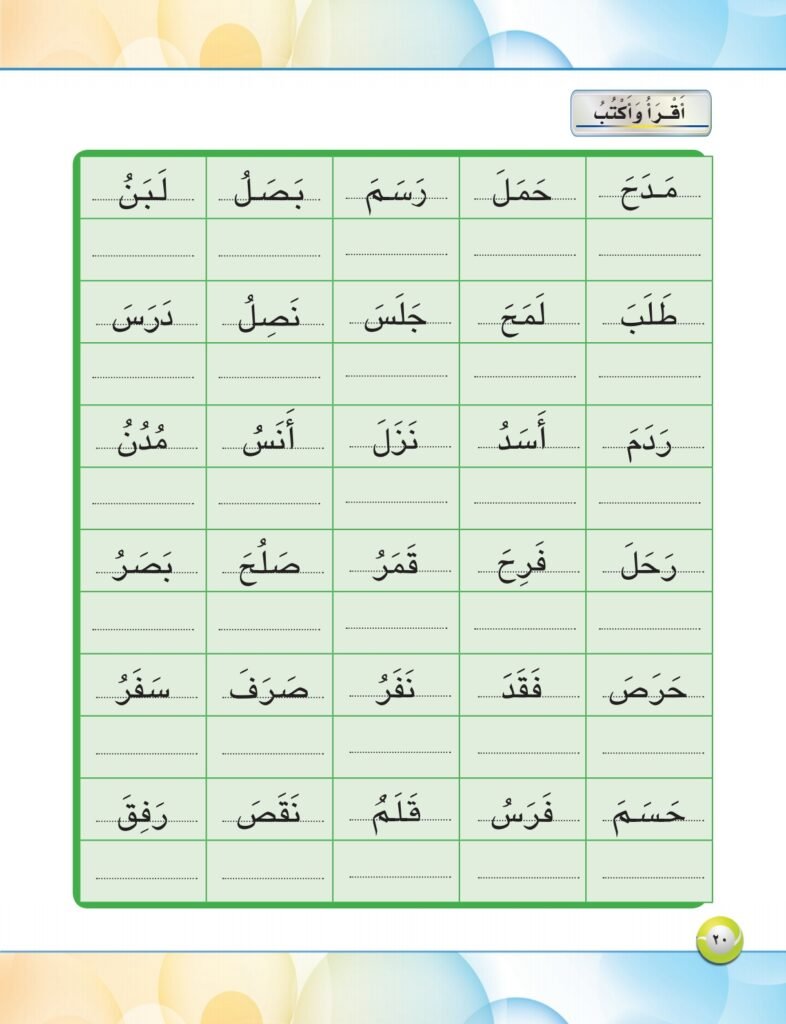 أَقْرَأُ وَأَكْتُبُ
مَدَحَ حَمَلَ رَسَمَ بَصَلُ لَبَنُ
طَلَبَ لَمَحَ جَلَسَ نَصِلُ دَرَسَ
رَدَمَ أَسَدُ نَزَلَ أَنَسُ مُدُنُ
رَحَلَ فَرِحَ قَمَرُ صَلُحَ بَصَرُ
حَرَصَ فَقَدَ نَفَرُ صَرَفَ سَفَرُ
حَسَمَ فَرَسُ قَلَمُ نَقَصَ رَفِقَ
٢٠